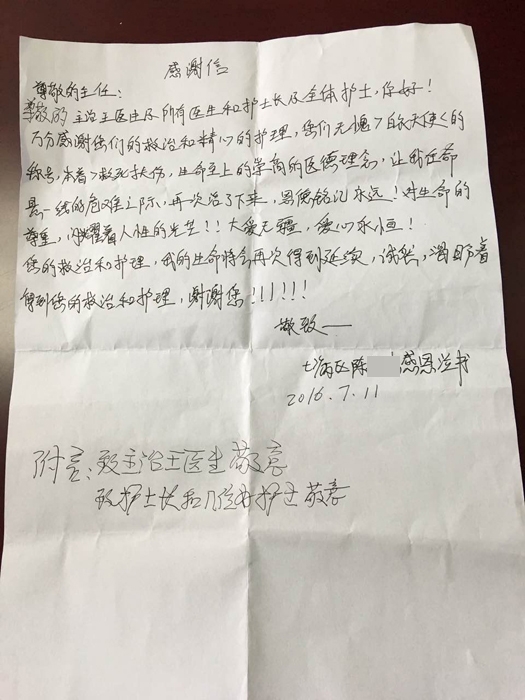 感谢信
尊敬的主任：
尊敬的主治王医生及所有医生和护士长及全体护士，你好！
万分感谢您们的救治和精心的护理，您们无愧>白衣天使<的
称号，本着>救死扶伤，生命至上的崇高的医德理念，让我在命
悬一线的危难之际，再次活了下来，恩德铭记永远！对生命的
尊重，闪耀着人性的光芒！！大爱无疆，爱心永恒！
您的救治和护理，我的生命将会再次得到延续，诚然，渴盼着
得到您的救治和护理，谢谢您！！！！！！
敬致一
七病区陈 感恩涕书
2016.7.11
附言：致主治王医生敬意
致护士长和几位女护士敬意